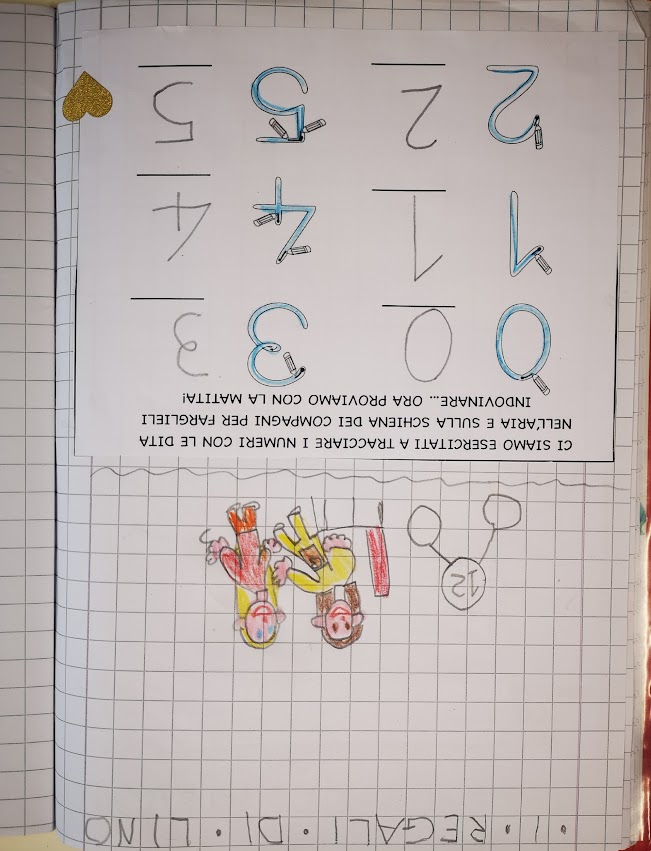 • I • REGALI • DI • LINO
12
CI SIAMO ESERCITATI A TRACCIARE I NUMERI CON LE DITA
NELL'ARIA E SULLA SCHIENA DEI COMPAGNI PER FARGLIELI
INDOVINARE... ORA PROVIAMO CON LA MATITA!
0 0 3 3
1 1 4 4
2 2 5 5